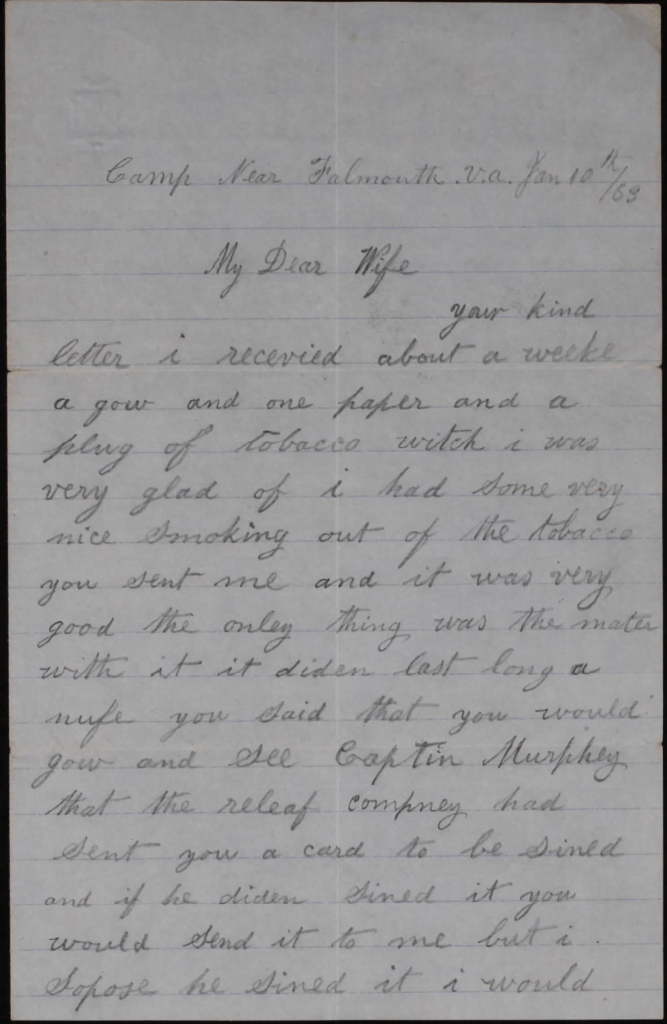 Camp Near Falmouth V.a. Jan 10th/63
My Dear Wife
your kind
letter i recevied about a weeke
a gow and one paper and a
plug of tobacco witch i was
very glad of i had some very
nice smoking out of the tobacco
you sent me and it was very
good the onley thing was the mater
with it it diden last long a
nufe you said that you would
gow and see Captin Murphey
that the releaf compney had
sent you a card to be sined
and if he diden sined it you
would send it to me but i
sopose he sined it i would